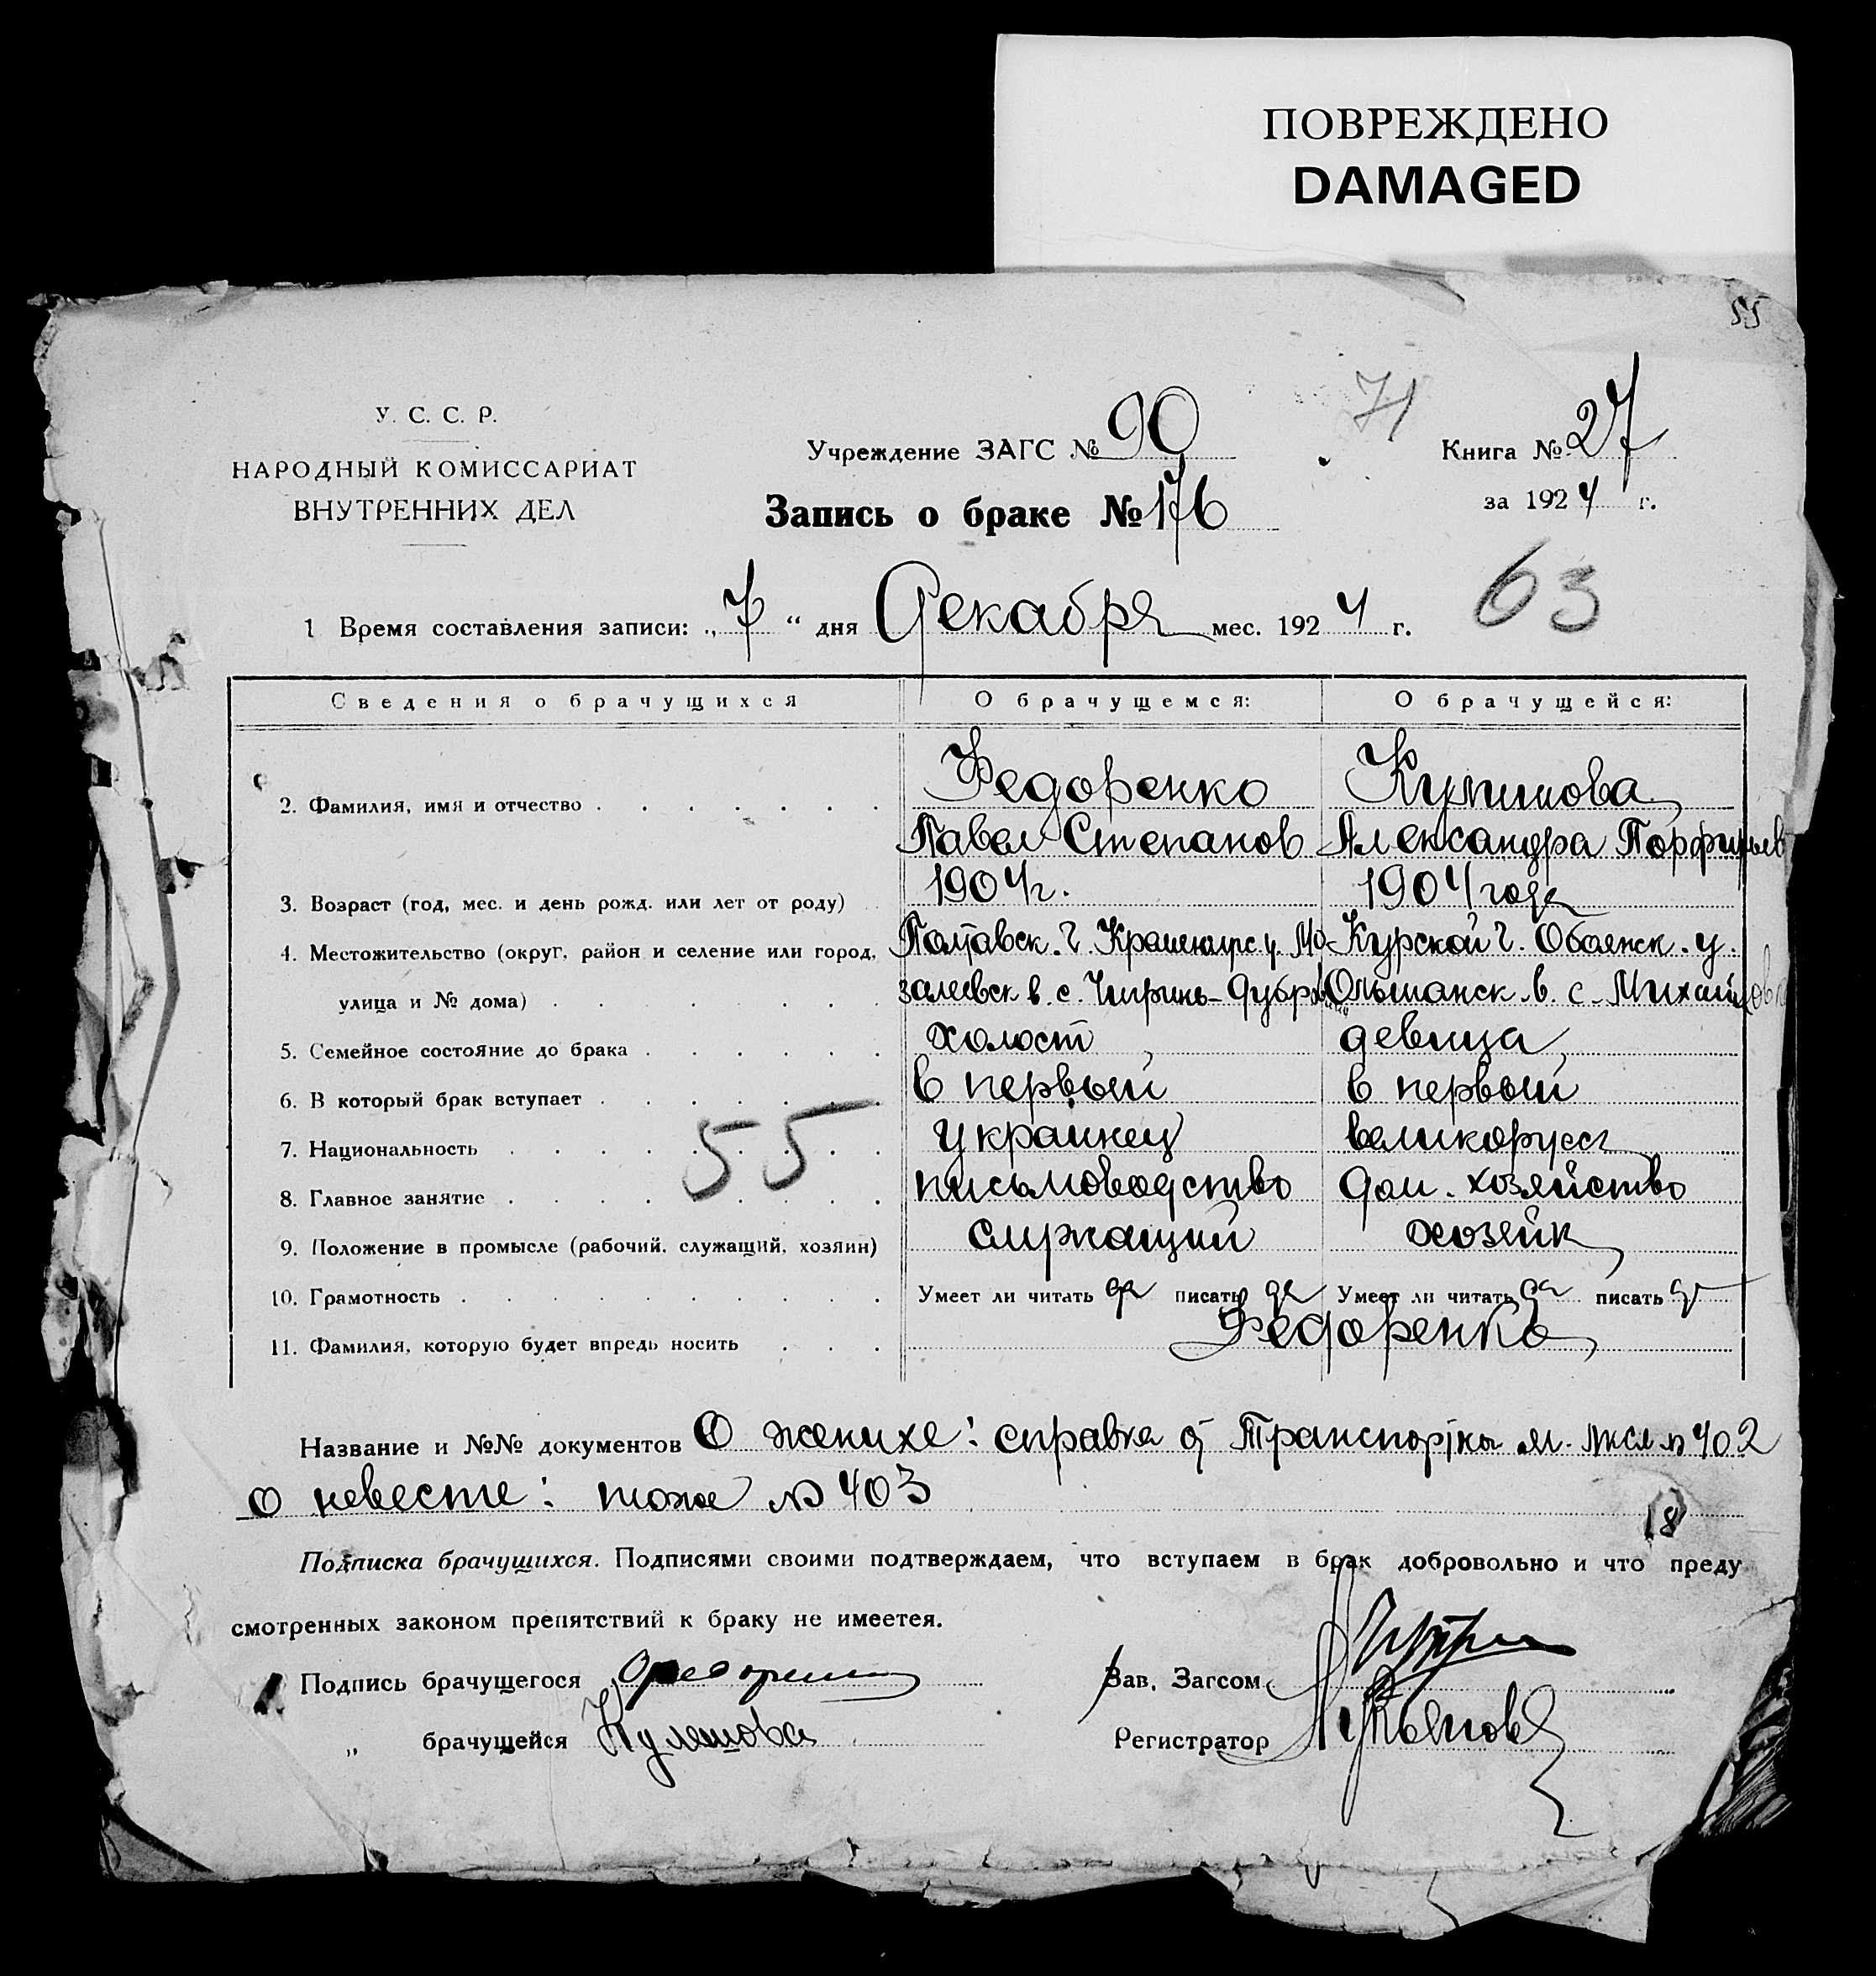 ПОВРЕЖДЕНО
DAMAGED
55
У. С. С. Р.
НАРОДНЫЙ КОМИССАРИАТ
ВНУТРЕННИХ ДЕЛ
Учреждение ЗАГС № 90
71
Книга № 27
за 1924 г.
Запись о браке № 176
63
1 Время составления записи: „7“ дня Декабря мес. 1924 г.
Сведения о брачущихся О брачущемся: О брачущейся:
2. Фамилия, имя и отчество Федоренко Кулишова
Павел Степанов Александра Порфирьев
3. Возраст (год, мес. и день рожд. или лет от роду) 1904 г. 1904 года
4. Местожительство (округ, район и селение или город, Полтавск. г. у. Мо- Курской г. Обоянск. у.
улица и № дома) залеевск в. с. Чигринь-Дубрав Ольшанск. в. с. Михайловка
5. Семейное состояние до брака холост девица
6. В который брак вступает в первый в первый
55
7. Национальность украинец великорусс
8. Главное занятие письмоводство дом. хозяйство
9. Положение в промысле (рабочий, служащий, хозяин) служащий хозяйк
10. Грамотность Умеет ли читать да писать да Умеет ли читать да писать да
11. Фамилия, которую будет впредь носить Федоренко
Название и №№ документов О женихе: справка от № 402
о невесте: тоже № 403
18
Подписка брачущихся. Подписями своими подтверждаем, что вступаем в брак добровольно и что преду
смотренных законом препятствий к браку не имеется.
Подпись брачущегося Зав. Загсом
„ брачущейся Кулешова Регистратор